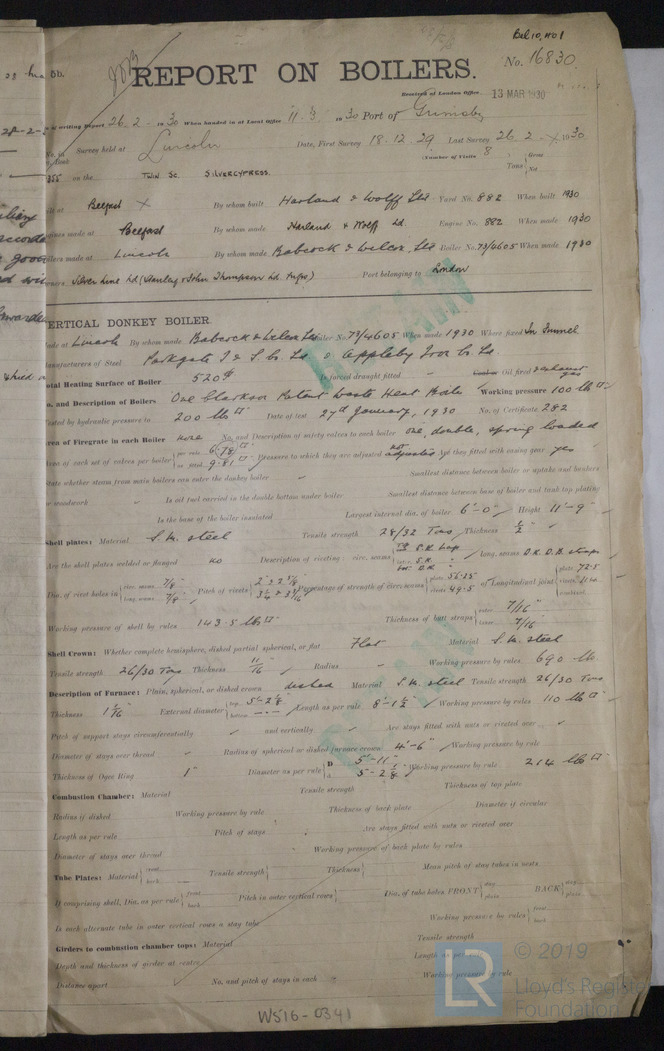 Bel 10, No 1
REPORT ON BOILERS.
No. 16830
Received at London Office 13 MAR 1930
writing Report 26. 2. 1930 When handed in at Local Office 11. 3. 1930 Port of Grimsby
No. in Survey held at Lincoln Date, First Survey 18.12.29 Last Survey 26. 2. 1930
(Number of Visits 8
on the TWIN SC. SILVERCYPRESS. Tons Gross Net
Belfast By whom built Harland & Wolff Ltd Yard No. 882 When built 1930
made at Belfast By whom made Harland & Wolff Ld. Engine No. 882 When made 1930
made at Lincoln By whom made Babcock & Wilcox, Ltd Boiler No. 73/4605 When made 1930
Silver Line Ld (Stanley & John Thompson Ld Mgrs) Port belonging to London
VERTICAL DONKEY BOILER.
Made at Lincoln By whom made Babcock & Wilcox Ltd Boiler No. 73/4605 When made 1930 Where fixed In Funnel
Manufacturers of Steel Parkgate I & S. Co. Ld & Appleby Iron Co. Ld
Total Heating Surface of Boiler 520 Is forced draught fitted Oil fired exhaust gas
No. and Description of Boilers One Clarkson Patent Waste Heat Boiler Working pressure 100 lbs
Tested by hydraulic pressure to 200 lbs Date of test 27th January, 1930 No. of Certificate 282
Area of Firegrate in each Boiler none No. and Description of safety valves to each boiler one, double, spring loaded
Area of each set of valves per boiler per rule 6.78 as fitted 9.81 Pressure to which they are adjusted not adjusted Are they fitted with easing gear yes
State whether steam from main boilers can enter the donkey boiler Smallest distance between boiler or uptake and bunkers
or woodwork Is oil fuel carried in the double bottom under boiler Smallest distance between base of boiler and tank top plating
Is the base of the boiler insulated Largest internal dia. of boiler 6'-0" Height 11'-9"
Shell plates: Material S.M. steel Tensile strength 28/32 Tons Thickness 1/2"
Are the shell plates welded or flanged no Description of riveting: circ. seams S.R. lap long. seams D.R. D.B. straps
Dia. of rivet holes in circ. seams 7/8" long. seams 7/8" Pitch of rivets Percentage of strength of circ. seams plate 56.25 rivets 49.5 of Longitudinal joint plate 72.5
Working pressure of shell by rules 143.5 lbs Thickness of butt straps outer 7/16" inner 7/16
Shell Crown: Whether complete hemisphere, dished partial spherical, or flat Flat Material S.M. steel
Tensile strength 26/30 Tons Thickness 11/16" Radius Working pressure by rules 690 lb
Description of Furnace: Plain, spherical, or dished crown dished Material S.M. steel Tensile strength 26/30 Tons
Thickness External diameter top 5'-2 bottom Length as per rule 8'-1 1/2" Working pressure by rules 110 lbs
Pitch of support stays circumferentially and vertically Are stays fitted with nuts or riveted over
Diameter of stays over thread Radius of spherical or dished furnace crown 4'-6" Working pressure by rule
Thickness of Ogee Ring 1" Diameter as per rule D 5'-11 d 5'-2 Working pressure by rule 214 lbs
Combustion Chamber: Material Tensile strength Thickness of top plate
Radius if dished Working pressure by rule Thickness of back plate Diameter if circular
Length as per rule Pitch of stays Are stays fitted with nuts or riveted over
Diameter of stays over thread Working pressure of back plate by rules
Tube Plates: Material front back Tensile strength Thickness Mean pitch of stay tubes in nests
If comprising shell, Dia. as per rule front back Pitch in outer vertical rows Dia. of tube holes FRONT stay plain BACK stay plain
Is each alternate tube in outer vertical rows a stay tube Working pressure by rules front back
Girders to combustion chamber tops: Material Tensile strength
Depth and thickness of girder at centre Length as per
Distance apart No. and pitch of stays in each Working pressure by rule
W516-0341
LR
© 2019
Lloyd's Register
Foundation